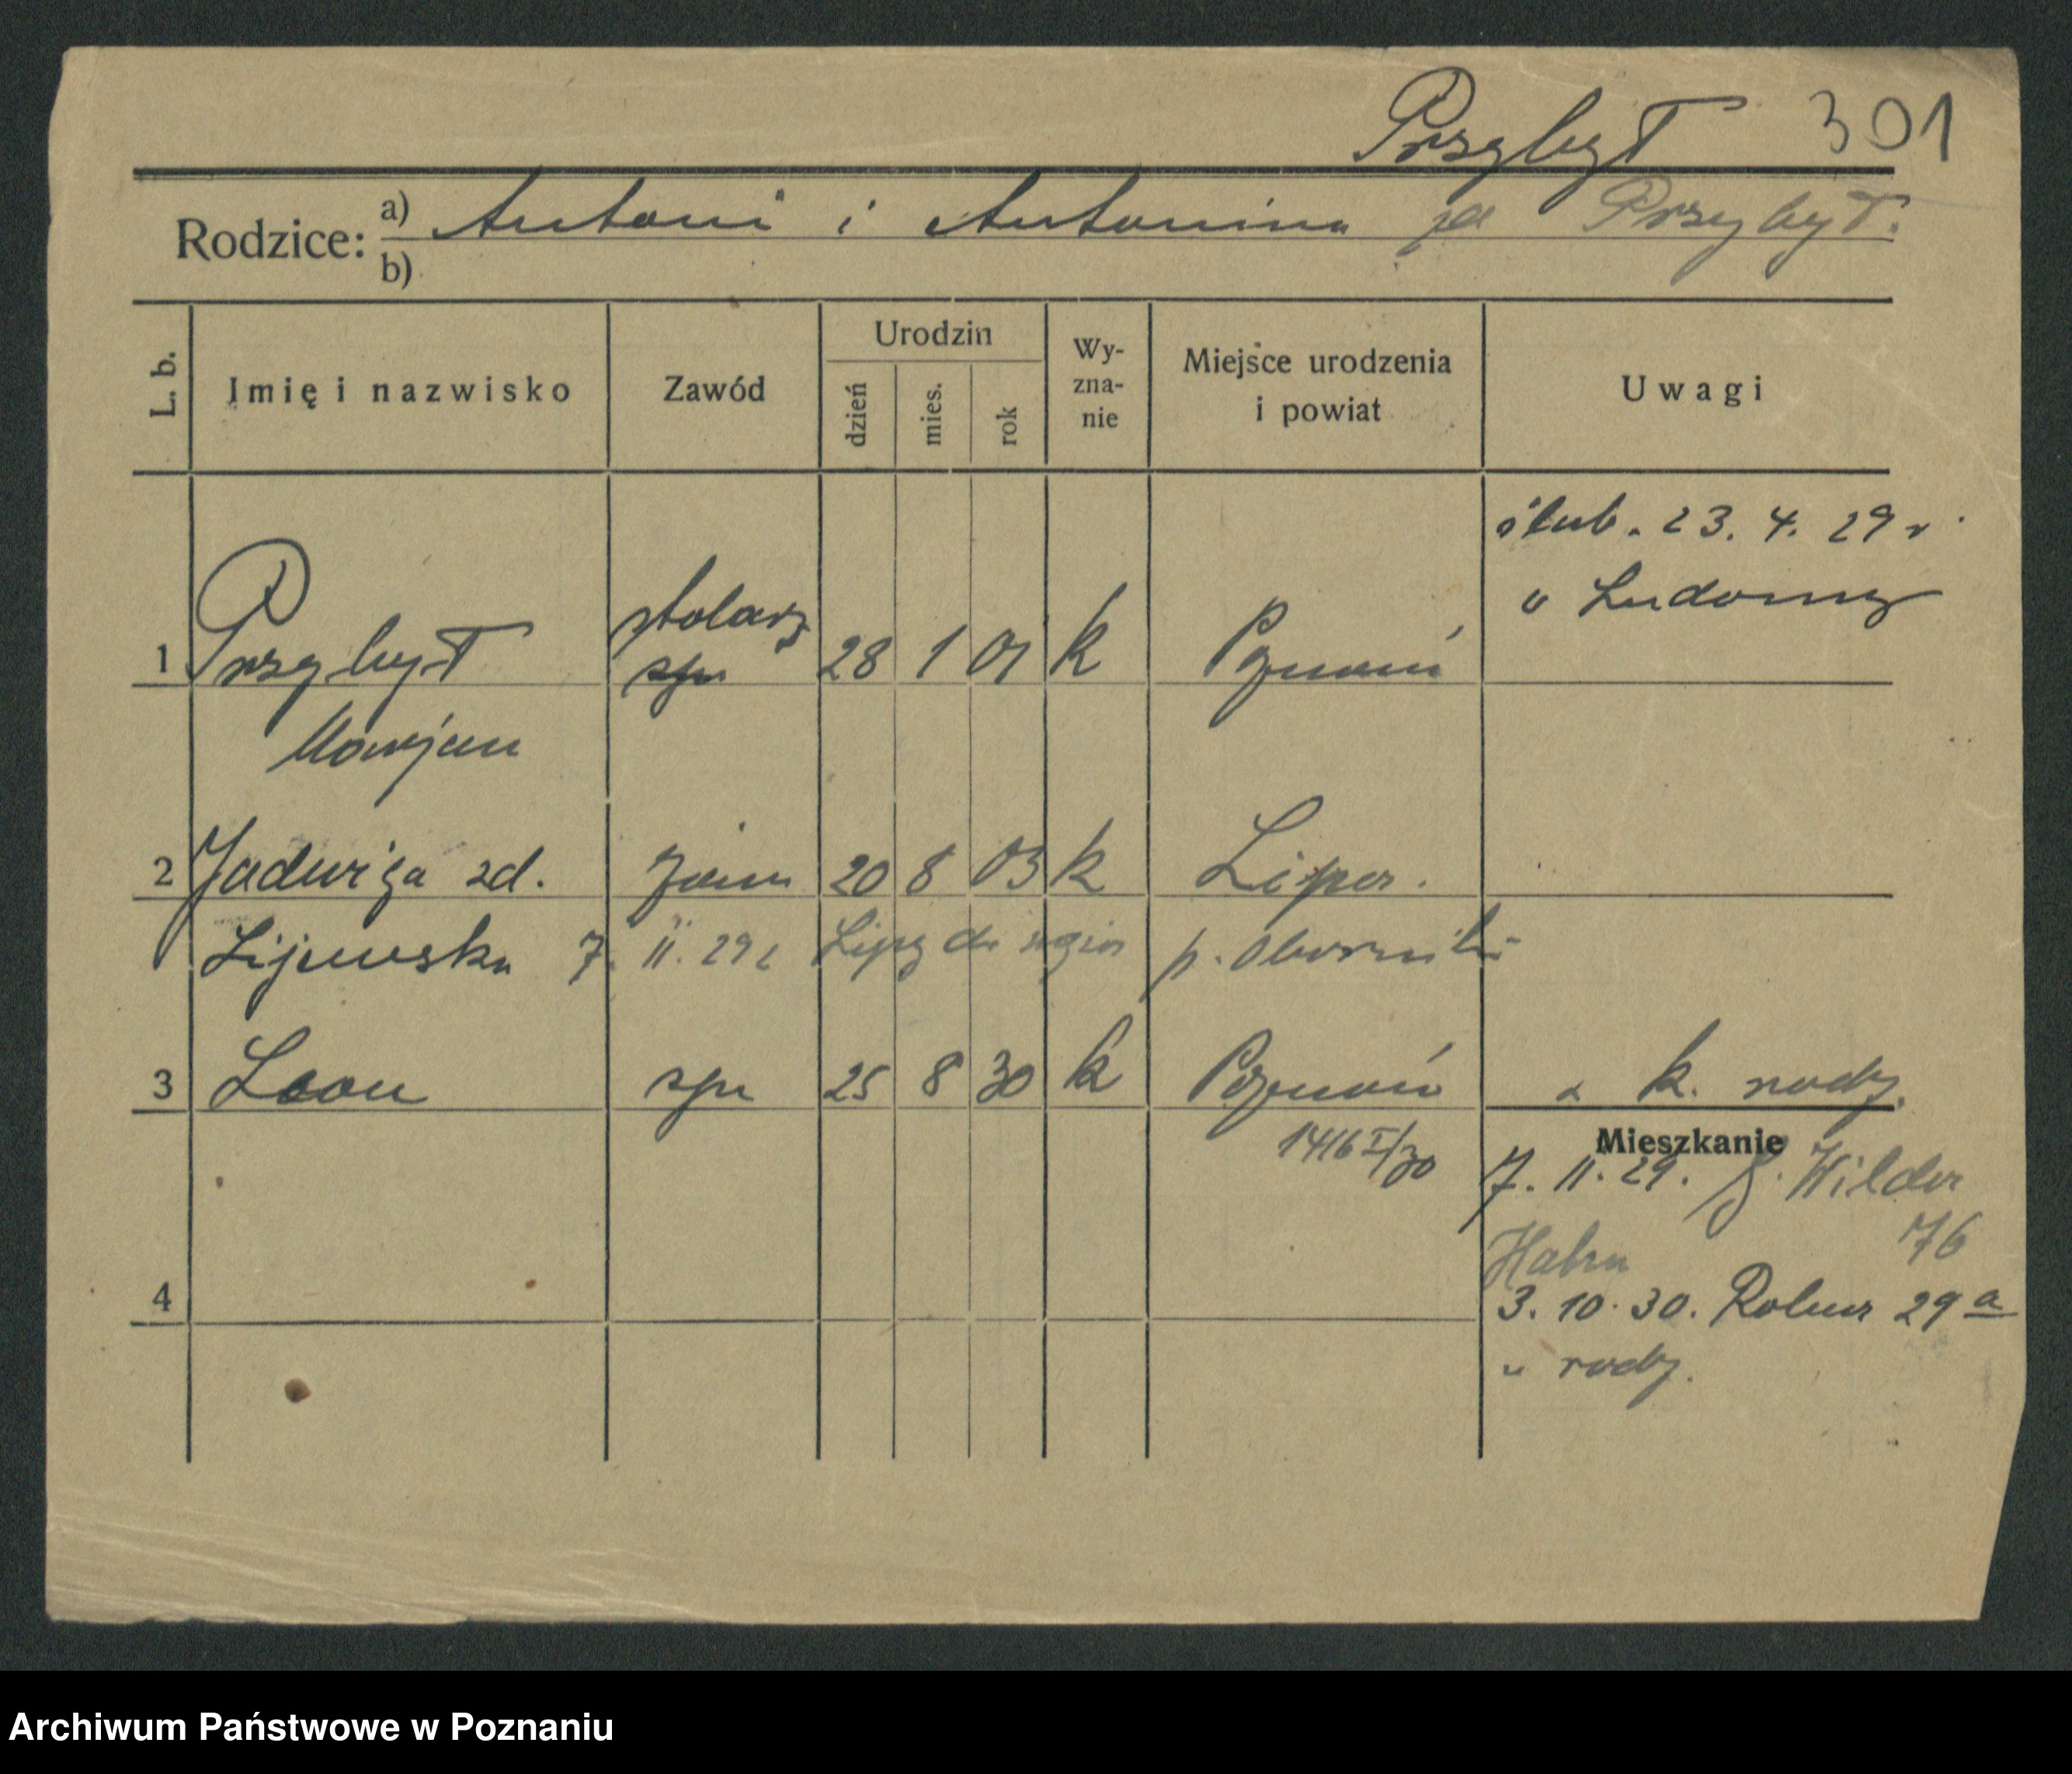 Przybył 301
Rodzice: a) Antoni i Antonina Przybył.
b)
L. b. Imię i nazwisko Zawód Urodzin dzień mies. rok Wyznanie Miejsce urodzenia i powiat Uwagi
ślub. 23. 4. 29 r
w Ludomy
stolarz
1 Przybył 28 1 01 k Poznań
Marjan
2 Jadwiga zd. 20 8 03 k Lipa.
Lijewska 7. 11. 29 p. Oborniki
3 Leon syn 25 8 30 k Poznań k. rodz.
1416 I/30
Mieszkanie
7. 11. 29. Wilder
76
4
3. 10. 30. 29 a
u rodz.
Archiwum Państwowe w Poznaniu